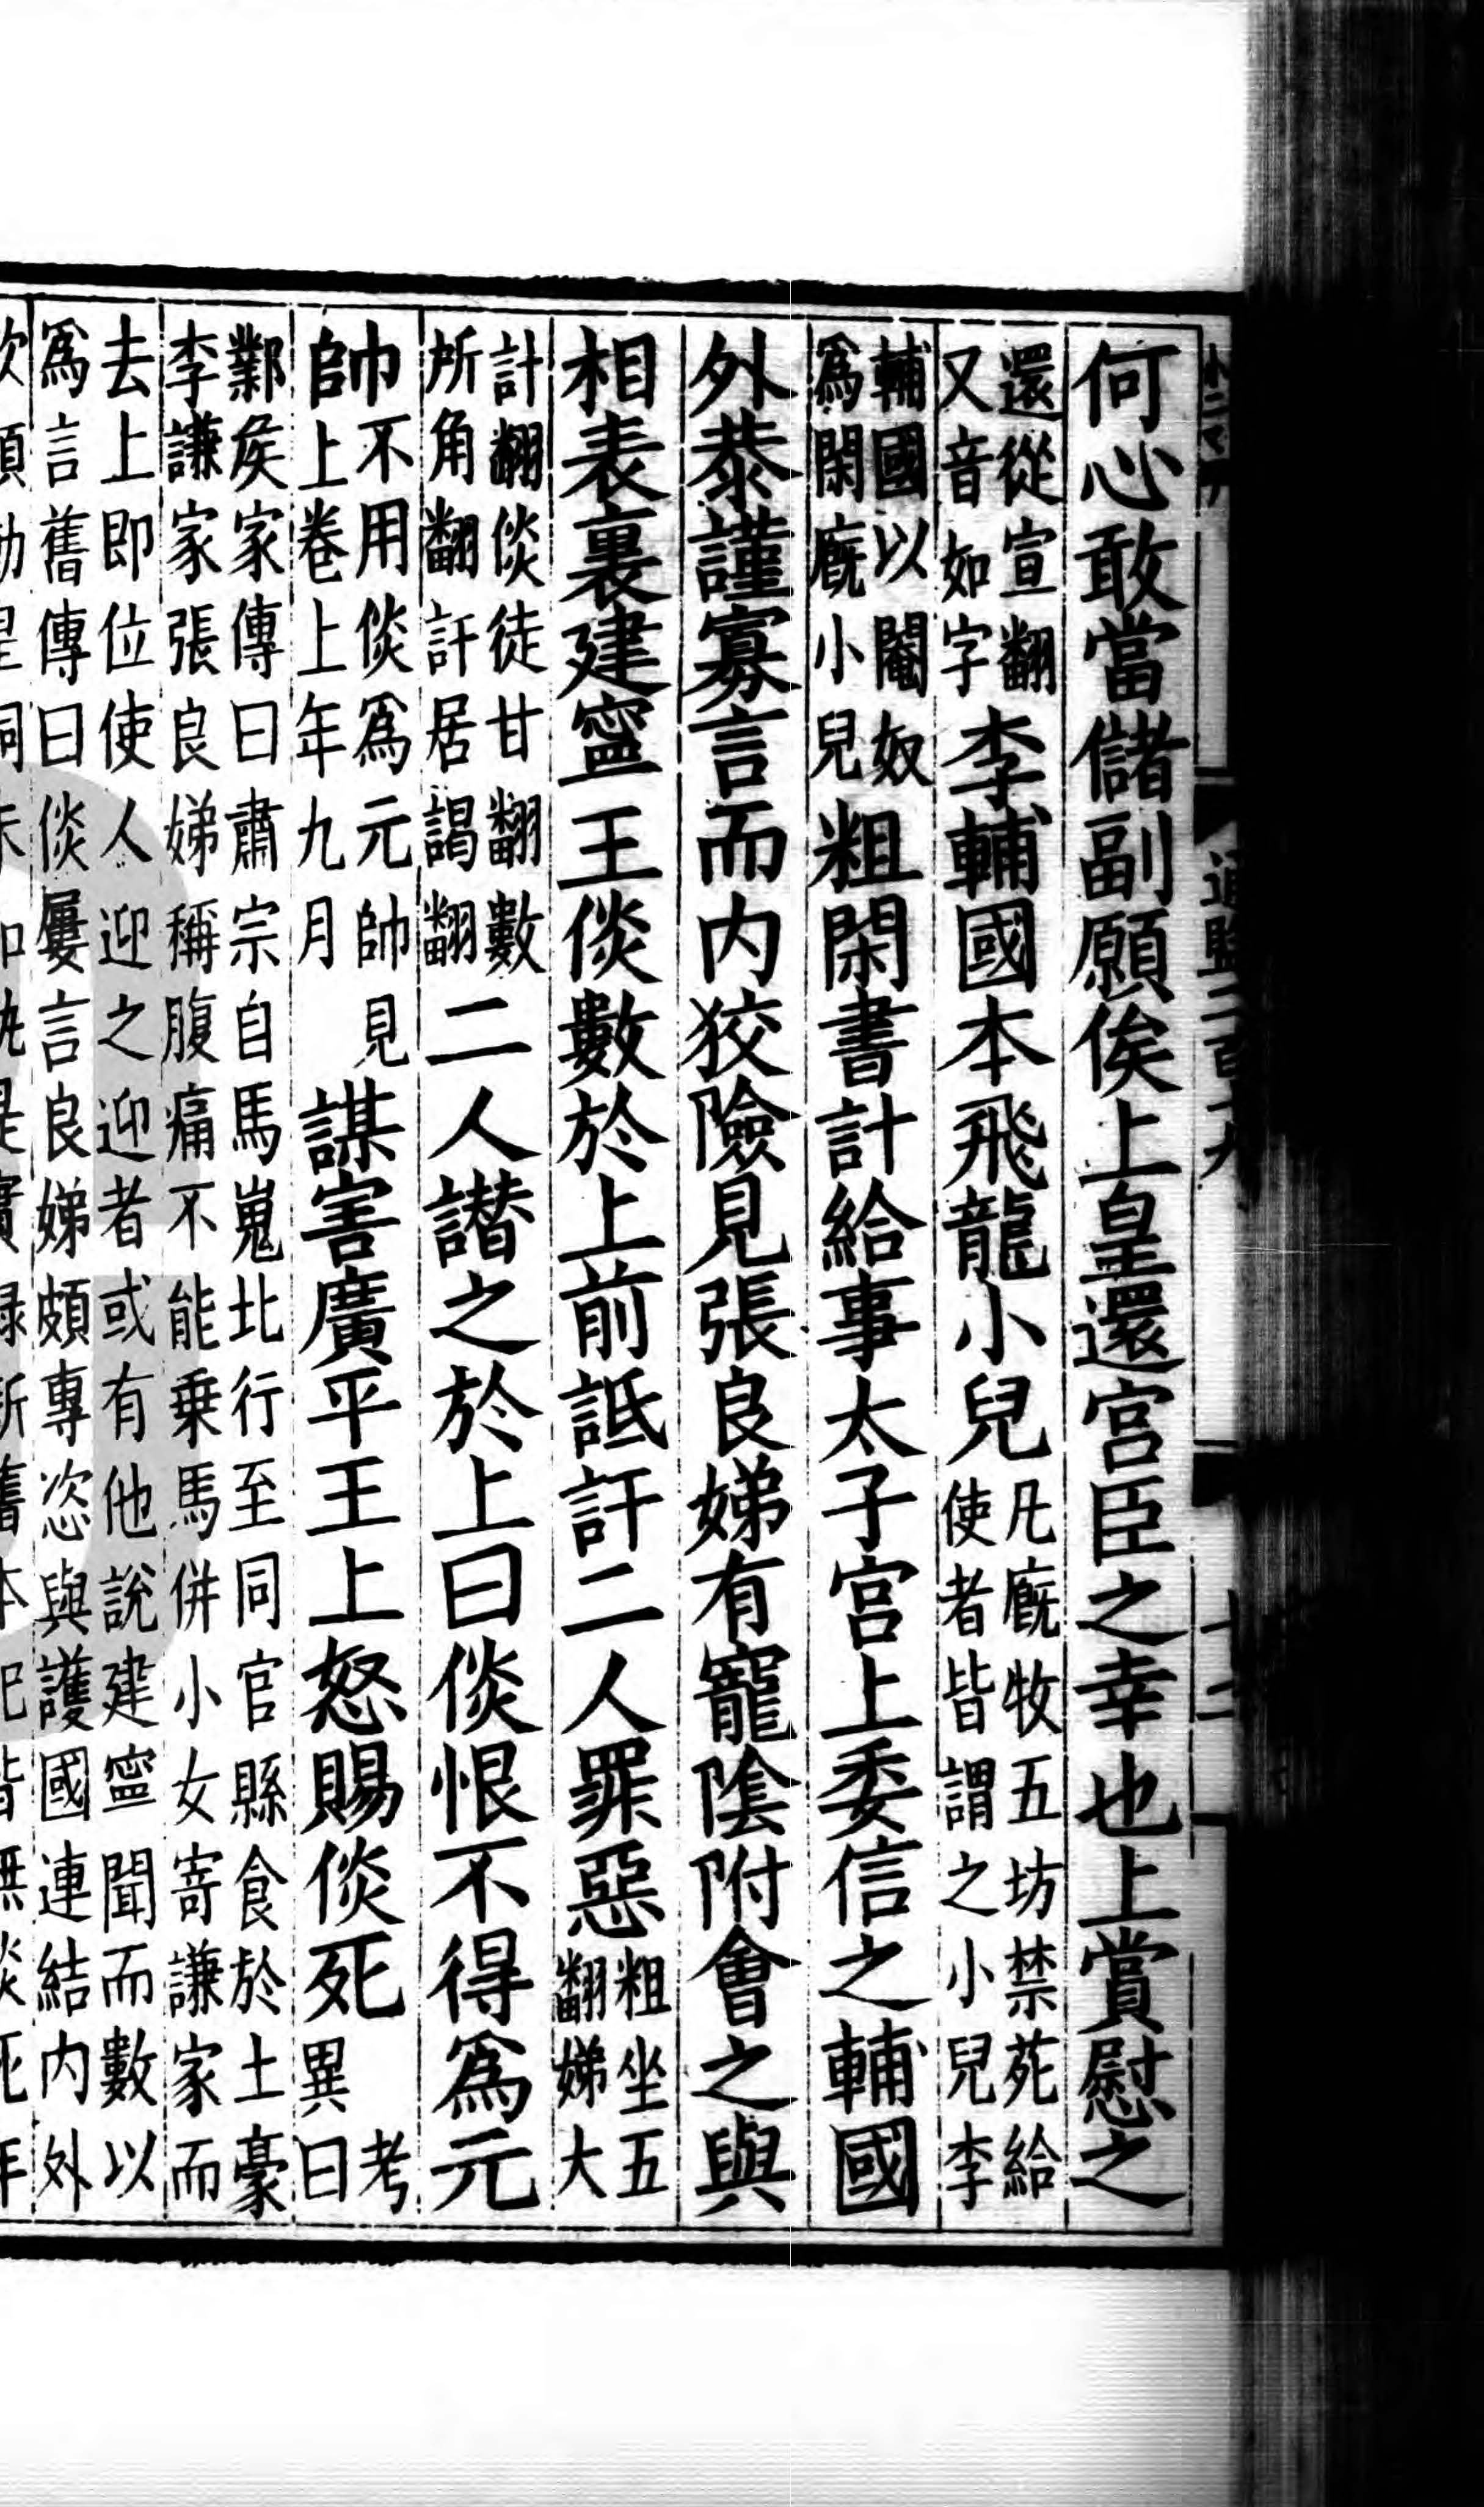 何心敢當儲副願俟上皇還宮臣之幸也上賞慰之
還從宣翻
又音如字
李輔國本飛龍小兒
凡廐牧五坊禁苑給
使者皆謂之小兒李
輔國以閹奴
爲閑廐小兒
粗閑書計給事太子宮上委信之輔國
外恭謹寡言而内狡險見張良娣有寵陰附會之與
相表裏建寧王倓數於上前詆訐二人罪惡
粗坐五
翻娣大
計翻倓徒甘翻數
所角翻訐居謁翻
二人譖之於上曰倓恨不得爲元
帥
不用倓爲元帥見
上卷上年九月
謀害廣平王上怒賜倓死
考
異曰
鄴矦家傳曰肅宗自馬嵬北行至同官縣食於土豪
李謙家張良娣稱腹痛不能乗馬併小女寄謙家而
去上即位使人迎之迎者或有他說建寧聞而數以
爲言舊傳曰倓屢言良娣頗專恣與護國連結内外